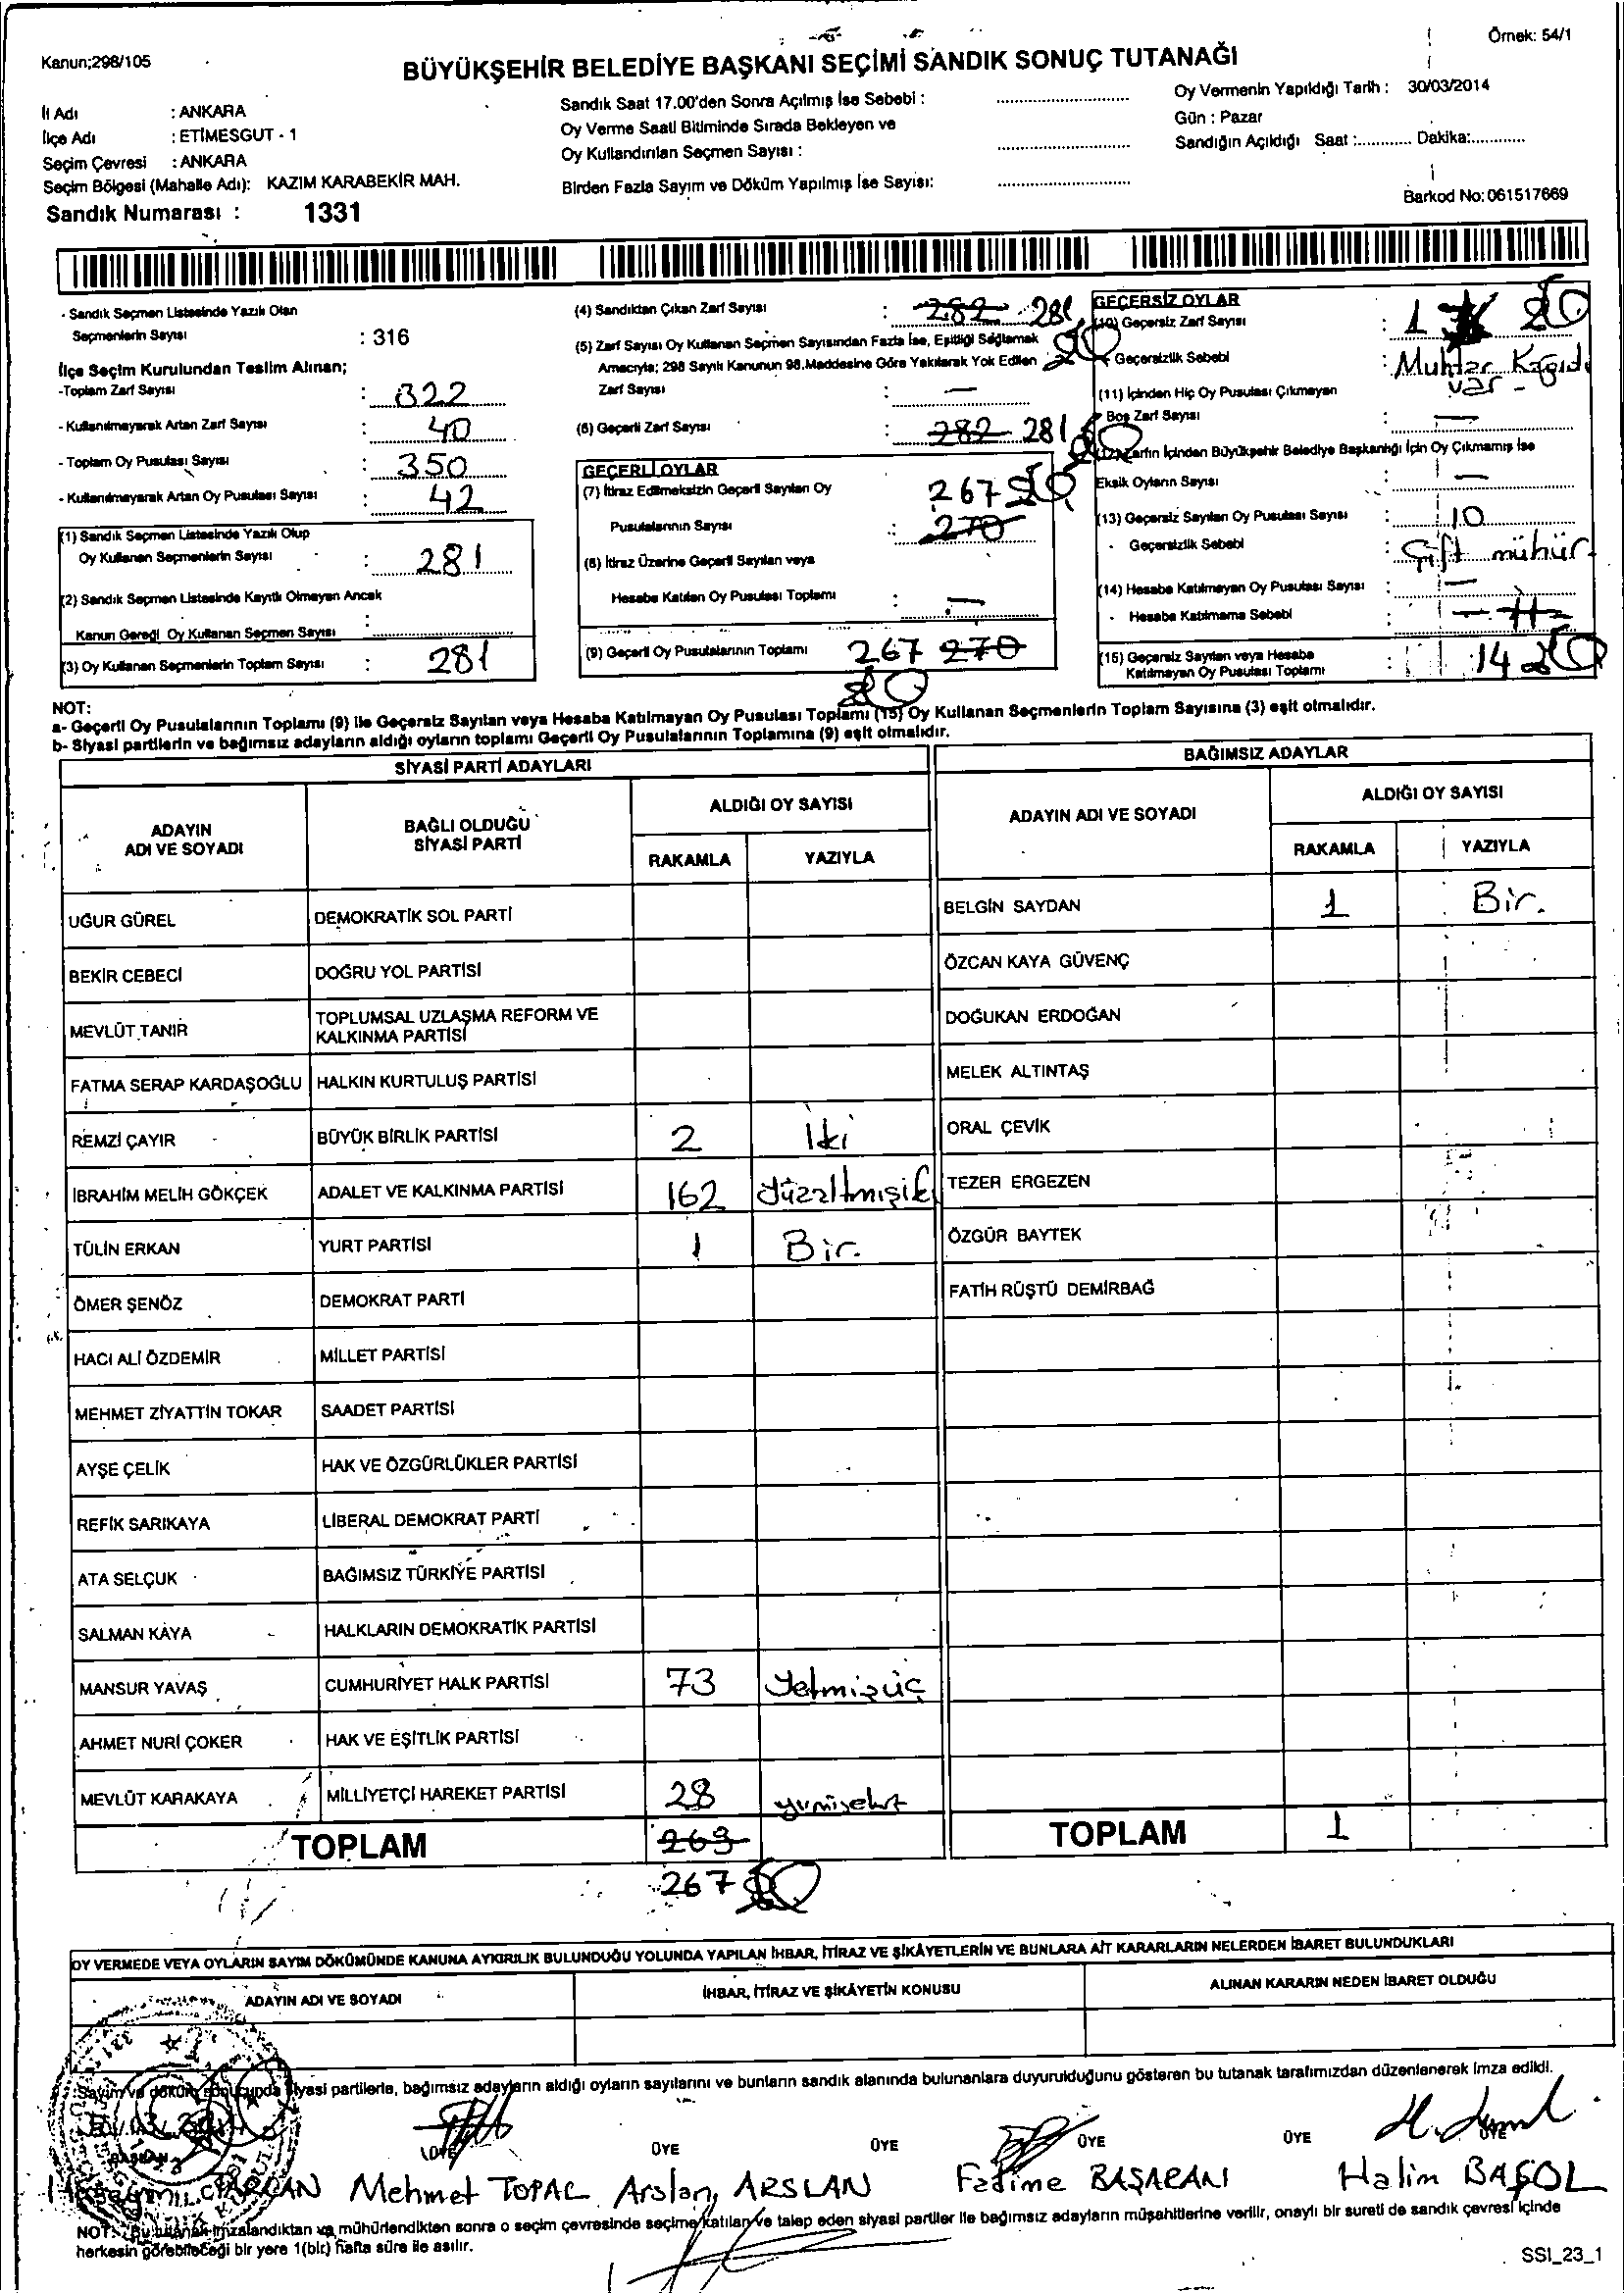 Örnek: 54/1
Kanun;298/105
BÜYÜKŞEHİR BELEDİYE BAŞKANI SEÇİMİ SANDIK SONUÇ TUTANAĞI
İl Adı : ANKARA
İlçe Adı : ETİMESGUT - 1
Seçim Çevresi : ANKARA
Seçim Bölgesi (Mahalle Adı): KAZIM KARABEKİR MAH.
Sandık Numarası : 1331
Sandık Saat 17.00'den Sonra Açılmış İse Sebebi : ..............................
Oy Verme Saati Bitiminde Sırada Bekleyen ve
Oy Kullandırılan Seçmen Sayısı : ..............................
Birden Fazla Sayım ve Döküm Yapılmış İse Sayısı: ..............................
Oy Vermenin Yapıldığı Tarih : 30/03/2014
Gün : Pazar
Sandığın Açıldığı Saat :............ Dakika:............
Barkod No: 061517669
- Sandık Seçmen Listesinde Yazılı Olan
Seçmenlerin Sayısı : 316
İlçe Seçim Kurulundan Teslim Alınan;
-Toplam Zarf Sayısı : 322
- Kullanılmayarak Artan Zarf Sayısı : 40
- Toplam Oy Pusulası Sayısı : 350
- Kullanılmayarak Artan Oy Pusulası Sayısı : 42
(1) Sandık Seçmen Listesinde Yazılı Olup
Oy Kullanan Seçmenlerin Sayısı : 281
(2) Sandık Seçmen Listesinde Kayıtlı Olmayan Ancak
Kanun Gereği Oy Kullanan Seçmen Sayısı :
(3) Oy Kullanan Seçmenlerin Toplam Sayısı : 281
(4) Sandıktan Çıkan Zarf Sayısı : 282 281
(5) Zarf Sayısı Oy Kullanan Seçmen Sayısından Fazla İse, Eşitliği Sağlamak
Amacıyla; 298 Sayılı Kanunun 98.Maddesine Göre Yakılarak Yok Edilen
Zarf Sayısı : —
(6) Geçerli Zarf Sayısı : 282 281
GEÇERLİ OYLAR
(7) İtiraz Edilmeksizin Geçerli Sayılan Oy 267
Pusulalarının Sayısı : 270
(8) İtiraz Üzerine Geçerli Sayılan veya
Hesaba Katılan Oy Pusulası Toplamı : —
(9) Geçerli Oy Pusulalarının Toplamı 267 270
GEÇERSİZ OYLAR
(10) Geçersiz Zarf Sayısı : 1
Geçersizlik Sebebi : Muhtar Kağıdı
var -
(11) İçinden Hiç Oy Pusulası Çıkmayan
Boş Zarf Sayısı : —
(12) Zarfın İçinden Büyükşehir Belediye Başkanlığı İçin Oy Çıkmamış İse
Eksik Oyların Sayısı : —
(13) Geçersiz Sayılan Oy Pusulası Sayısı : 10
- Geçersizlik Sebebi : Çift mühür
(14) Hesaba Katılmayan Oy Pusulası Sayısı : —
- Hesaba Katılmama Sebebi :
(15) Geçersiz Sayılan veya Hesaba
Katılmayan Oy Pusulası Toplamı : 14
NOT:
a- Geçerli Oy Pusulalarının Toplamı (9) ile Geçersiz Sayılan veya Hesaba Katılmayan Oy Pusulası Toplamı (15) Oy Kullanan Seçmenlerin Toplam Sayısına (3) eşit olmalıdır.
b- Siyasi partilerin ve bağımsız adayların aldığı oyların toplamı Geçerli Oy Pusulalarının Toplamına (9) eşit olmalıdır.
SİYASİ PARTİ ADAYLARI
ADAYIN ADI VE SOYADI BAĞLI OLDUĞU SİYASİ PARTİ ALDIĞI OY SAYISI
RAKAMLA YAZIYLA
UĞUR GÜREL DEMOKRATİK SOL PARTİ
BEKİR CEBECİ DOĞRU YOL PARTİSİ
MEVLÜT TANIR TOPLUMSAL UZLAŞMA REFORM VE KALKINMA PARTİSİ
FATMA SERAP KARDAŞOĞLU HALKIN KURTULUŞ PARTİSİ
REMZİ ÇAYIR BÜYÜK BİRLİK PARTİSİ 2 İki
İBRAHİM MELİH GÖKÇEK ADALET VE KALKINMA PARTİSİ 162 Yüzaltmışik
TÜLİN ERKAN YURT PARTİSİ 1 Bir.
ÖMER ŞENÖZ DEMOKRAT PARTİ
HACI ALİ ÖZDEMİR MİLLET PARTİSİ
MEHMET ZİYATTİN TOKAR SAADET PARTİSİ
AYŞE ÇELİK HAK VE ÖZGÜRLÜKLER PARTİSİ
REFİK SARIKAYA LİBERAL DEMOKRAT PARTİ
ATA SELÇUK BAĞIMSIZ TÜRKİYE PARTİSİ
SALMAN KAYA HALKLARIN DEMOKRATİK PARTİSİ
MANSUR YAVAŞ CUMHURİYET HALK PARTİSİ 73 Yetmişüç
AHMET NURİ ÇOKER HAK VE EŞİTLİK PARTİSİ
MEVLÜT KARAKAYA MİLLİYETÇİ HAREKET PARTİSİ 28 yirmisekz
TOPLAM 269
267
BAĞIMSIZ ADAYLAR
ADAYIN ADI VE SOYADI ALDIĞI OY SAYISI
RAKAMLA YAZIYLA
BELGİN SAYDAN 1 Bir.
ÖZCAN KAYA GÜVENÇ
DOĞUKAN ERDOĞAN
MELEK ALTINTAŞ
ORAL ÇEVİK
TEZER ERGEZEN
ÖZGÜR BAYTEK
FATİH RÜŞTÜ DEMİRBAĞ
TOPLAM 1
OY VERMEDE VEYA OYLARIN SAYIM DÖKÜMÜNDE KANUNA AYKIRILIK BULUNDUĞU YOLUNDA YAPILAN İHBAR, İTİRAZ VE ŞİKÂYETLERİN VE BUNLARA AİT KARARLARIN NELERDEN İBARET BULUNDUKLARI
ADAYIN ADI VE SOYADI İHBAR, İTİRAZ VE ŞİKÂYETİN KONUSU ALINAN KARARIN NEDEN İBARET OLDUĞU
Sayım ve döküm sonucunda siyasi partilerle, bağımsız adayların aldığı oyların sayılarını ve bunların sandık alanında bulunanlara duyurulduğunu gösteren bu tutanak tarafımızdan düzenlenerek imza edildi.
BAŞKAN ÜYE ÜYE ÜYE ÜYE ÜYE ÜYE
Mehmet TOPAL Arslan ARSLAN Fadime BAŞARAN Halim BAŞOL
NOT: Bu tutanak imzalandıktan ve mühürlendikten sonra o seçim çevresinde seçime katılan ve talep eden siyasi partiler ile bağımsız adayların müşahitlerine verilir, onaylı bir sureti de sandık çevresi içinde
herkesin görebileceği bir yere 1(bir) hafta süre ile asılır.
SSI_23_1